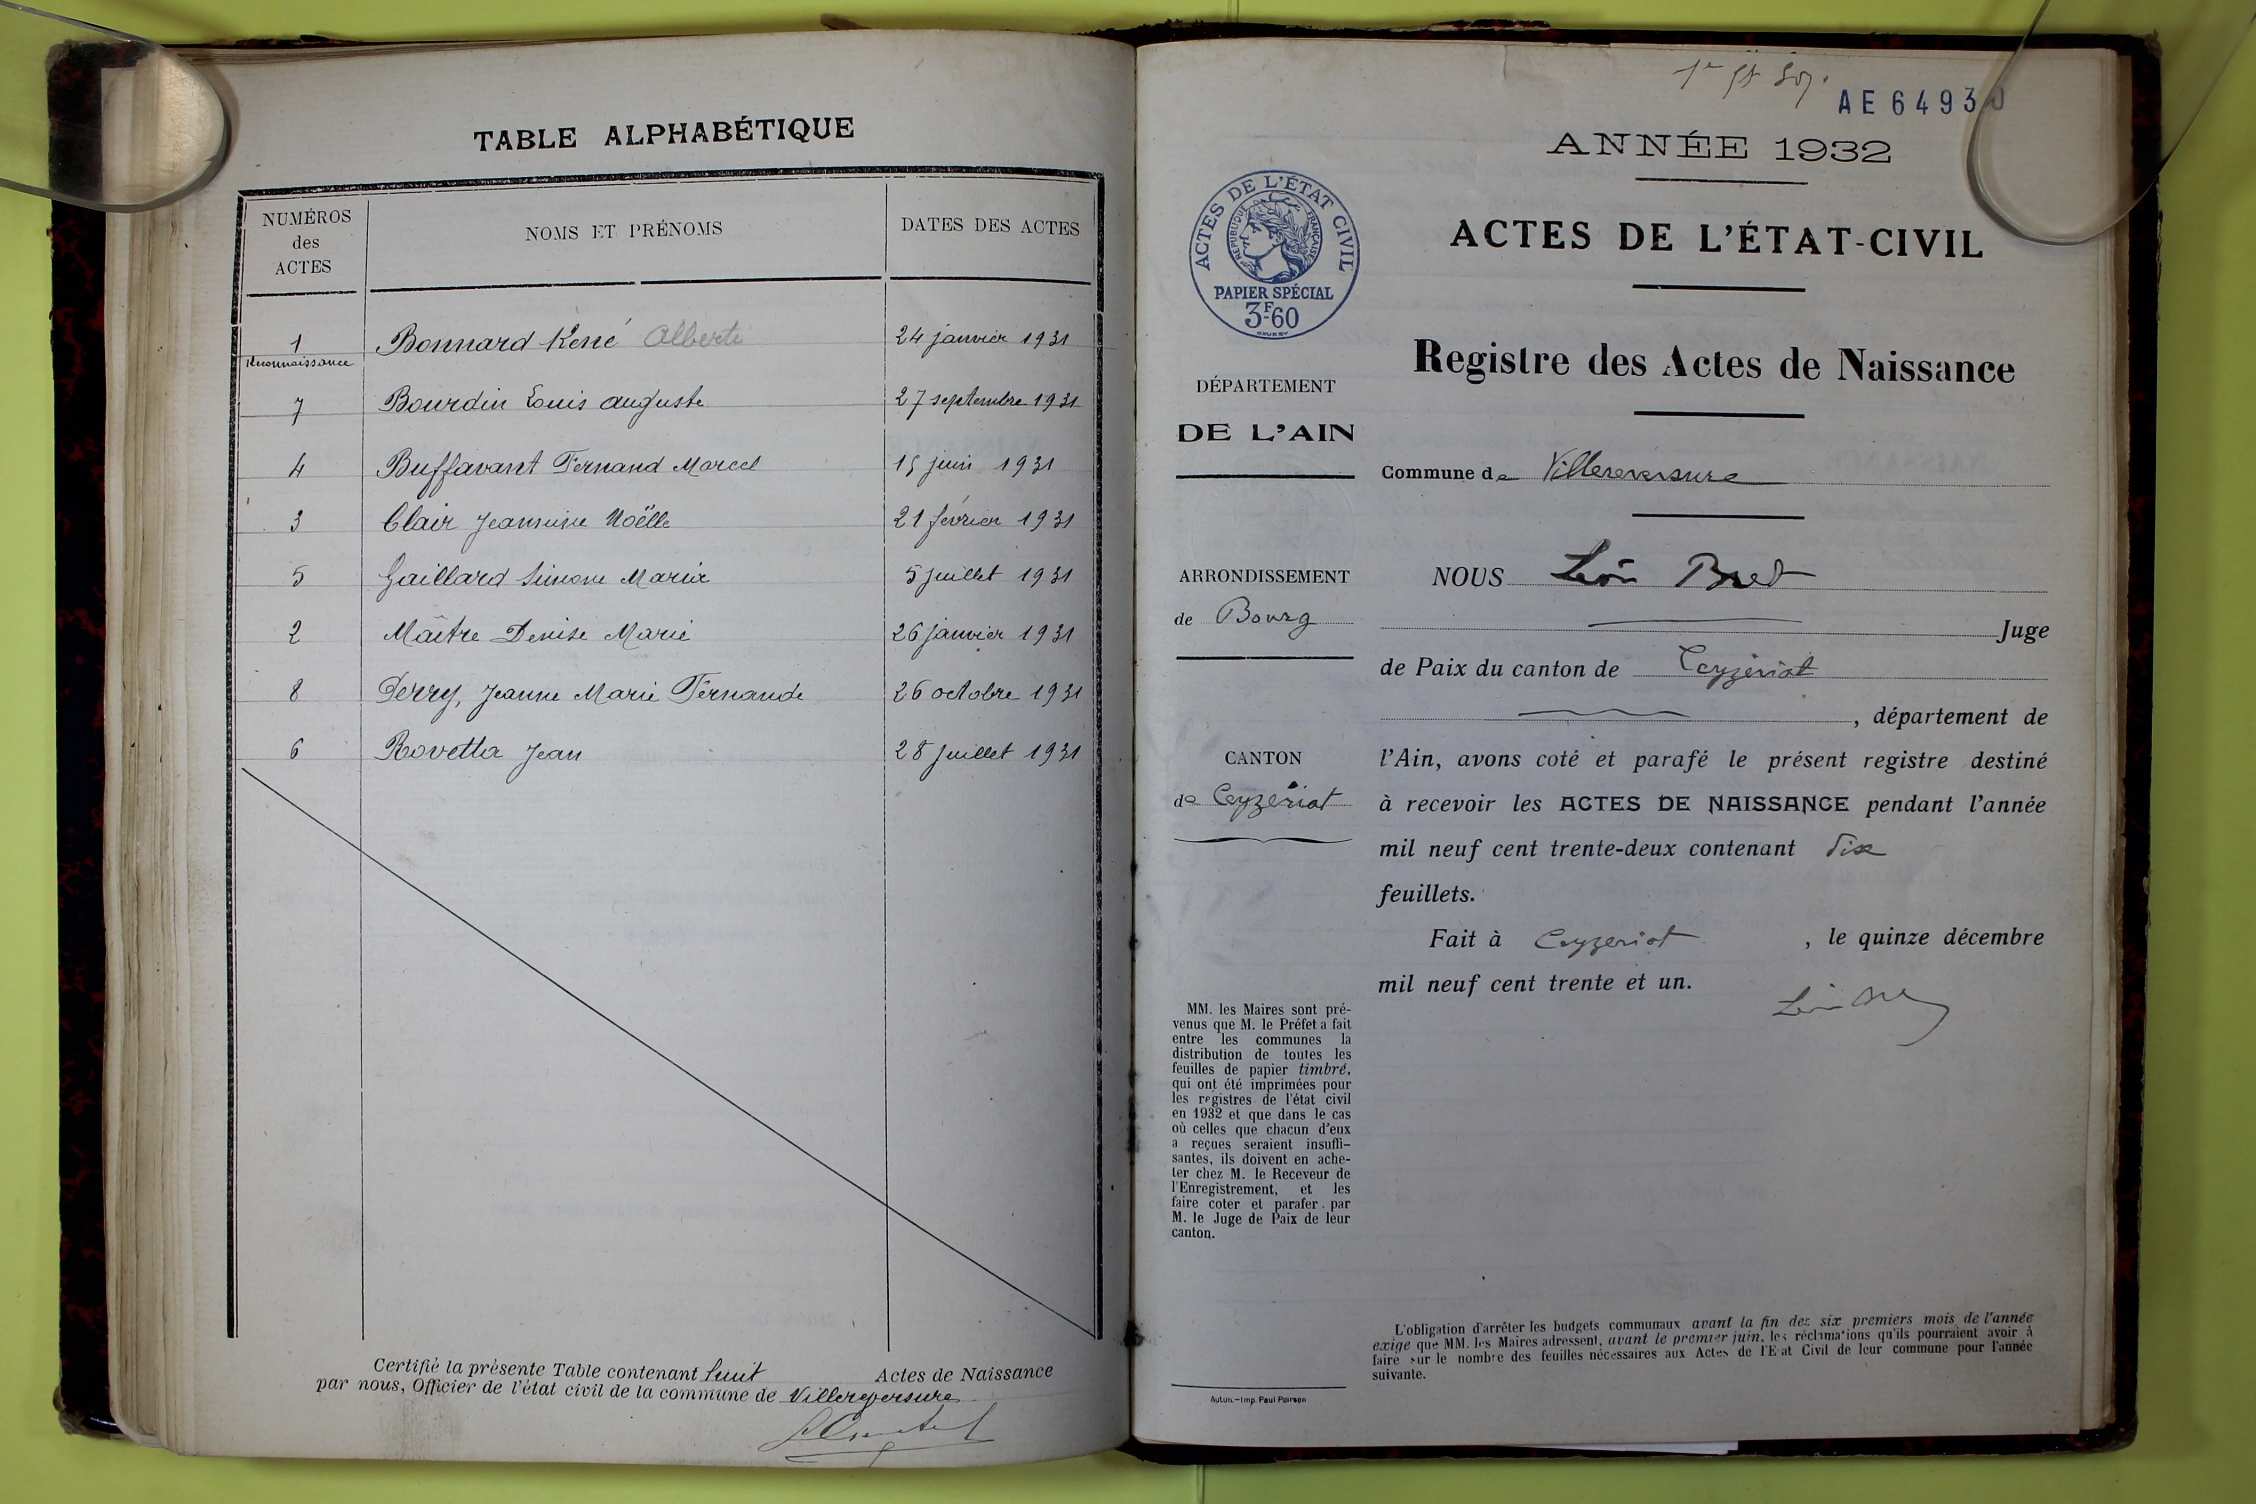 TABLE ALPHABÉTIQUE
NUMÉROS
des
ACTES
NOMS ET PRÉNOMS
DATES DES ACTES
1 Bonnard René Alberte 24 janvier 1931
Reconnaissance
7 Bourdin Louis auguste 27 septembre 1931
4 Buffavant Fernand Marcel 15 juin 1931
3 Clair Jeannine Noëlle 21 février 1931
5 Gaillard Simone Marie 5 juillet 1931
2 Maître Denise Marie 26 janvier 1931
8 Perry, Jeanne Marie Fernande 26 octobre 1931
6 Rovetta Jean 28 juillet 1931
Certifié la présente Table contenant huit Actes de Naissance
par nous, Officier de l'état civil de la commune de Villereversure
AE 6493
ANNÉE 1932
ACTES DE L'ÉTAT CIVIL
RÉPUBLIQUE FRANÇAISE
PAPIER SPÉCIAL
3F-60
ACTES DE L'ÉTAT-CIVIL
Registre des Actes de Naissance
DÉPARTEMENT
DE L'AIN
Commune de Villereversure
ARRONDISSEMENT
de Bourg
NOUS Léon Bret
Juge
de Paix du canton de Ceyzériat
, département de
CANTON
de Ceyzériat
l'Ain, avons coté et parafé le présent registre destiné
à recevoir les ACTES DE NAISSANCE pendant l'année
mil neuf cent trente-deux contenant dix
feuillets.
Fait à Ceyzeriat , le quinze décembre
mil neuf cent trente et un.
MM. les Maires sont pré-
venus que M. le Préfet a fait
entre les communes la
distribution de toutes les
feuilles de papier timbré,
qui ont été imprimées pour
les registres de l'état civil
en 1932 et que dans le cas
où celles que chacun d'eux
a reçues seraient insuffi-
santes, ils doivent en ache-
ter chez M. le Receveur de
l'Enregistrement, et les
faire coter et parafer par
M. le Juge de Paix de leur
canton.
L'obligation d'arrêter les budgets communaux avant la fin des six premiers mois de l'année
exige que MM. les Maires adressent, avant le premier juin, les réclamations qu'ils pourraient avoir à
faire sur le nombre des feuilles nécessaires aux Actes de l'Etat Civil de leur commune pour l'année
suivante.
Autun.-Imp. Paul Poirson